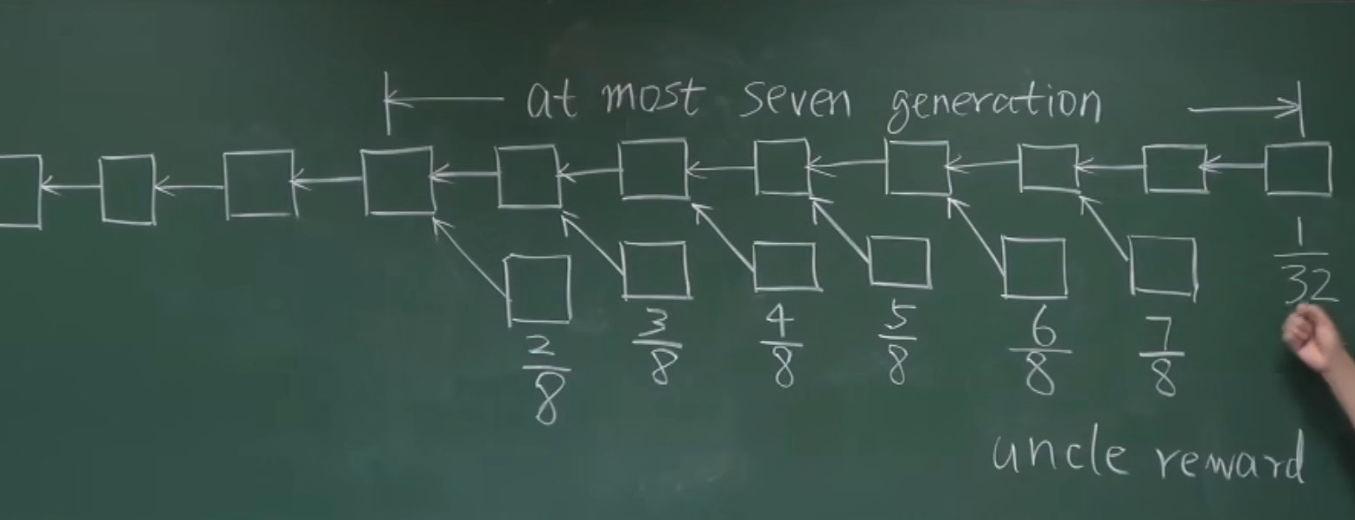 at most seven generation
1/32
2/8 3/8 4/8 5/8 6/8 7/8
uncle reward